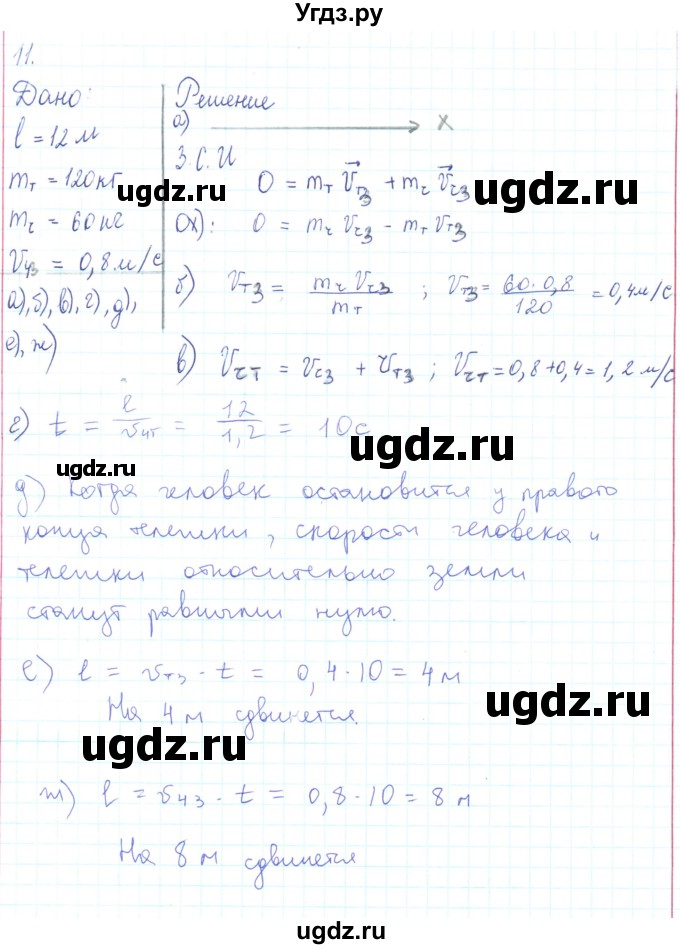 Угдз.ру
11.
Дано: Решение
а) X
l = 12 м
З.С.И
mт = 120 кг 0 = mт v⃗тз + mч v⃗чз
ugdz.ru ugdz.ru
mч = 60 кг Ох): 0 = mч vчз - mт vтз
vчз = 0,8 м/с
а), б), в), г), д), е), ж)
б) vтз = mч vчз / mт ; vтз = 60 · 0,8 / 120 = 0,4 м/с
в) vчт = vчз + vтз ; vчт = 0,8 + 0,4 = 1,2 м/с
г) t = l / vчт = 12 / 1,2 = 10 с
ugdz.ru ugdz.ru
д) Когда человек остановится у правого
конца тележки, скорости человека и
тележки относительно земли
станут равными нулю.
е) l = vтз · t = 0,4 · 10 = 4 м
На 4 м сдвинется.
ugdz.ru
ugdz.ru
ж) l = vчз · t = 0,8 · 10 = 8 м
На 8 м сдвинется
ugdz.ru